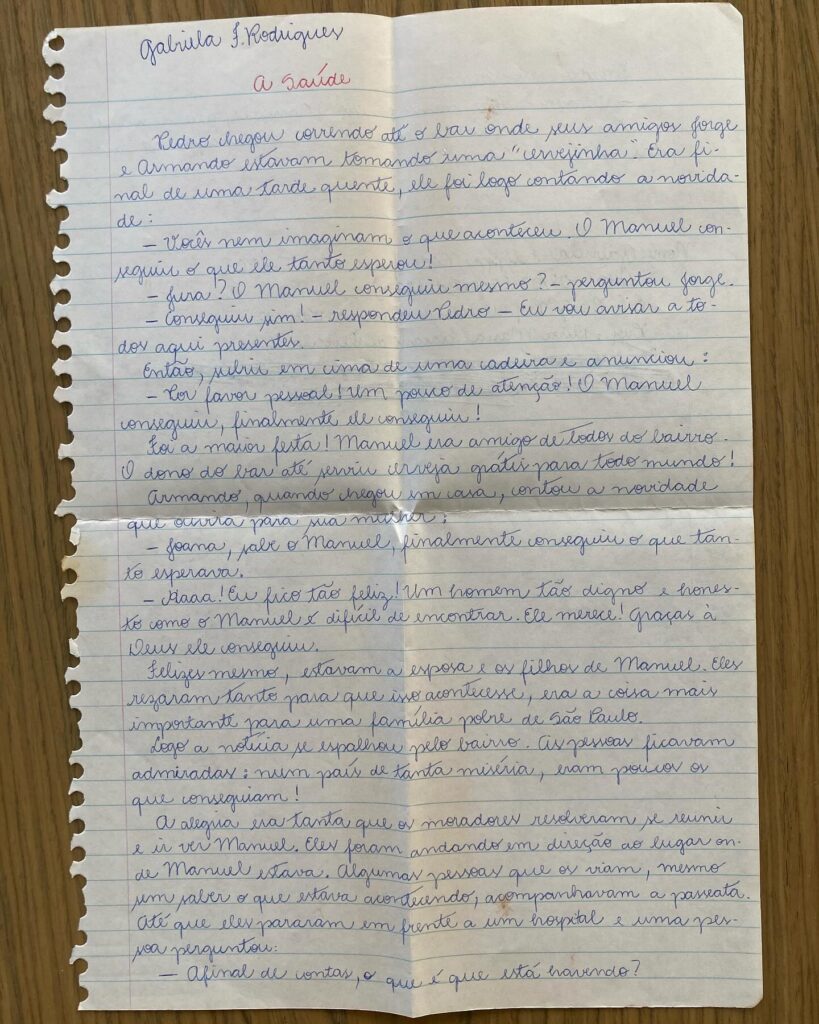 Gabriela F. Rodrigues
A Saúde
Pedro chegou correndo até o bar onde seus amigos Jorge
e Armando estavam tomando uma "cervejinha". Era fi-
nal de uma tarde quente, ele foi logo contando a novida-
de:
– Vocês nem imaginam o que aconteceu. O Manuel con-
seguiu o que ele tanto esperou!
– Jura? O Manuel conseguiu mesmo? – perguntou Jorge.
– Conseguiu sim! – respondeu Pedro – Eu vou avisar a to-
dos aqui presentes.
Então, subiu em cima de uma cadeira e anunciou:
– Por favor pessoal! Um pouco de atenção! O Manuel
conseguiu, finalmente ele conseguiu!
Foi a maior festa! Manuel era amigo de todos do bairro.
O dono do bar até serviu cerveja grátis para todo mundo!
Armando, quando chegou em casa, contou a novidade
que ouvira para sua mulher:
– Joana, sabe o Manuel, finalmente conseguiu o que tan-
to esperava.
– Aaaa! Eu fico tão feliz! Um homem tão digno e hones-
to como o Manuel é difícil de encontrar. Ele merece! Graças à
Deus ele conseguiu.
Felizes mesmo, estavam a esposa e os filhos de Manuel. Eles
rezaram tanto para que isso acontecesse, era a coisa mais
importante para uma família pobre de São Paulo.
Logo a notícia se espalhou pelo bairro. As pessoas ficavam
admiradas: num país de tanta miséria, eram poucos os
que conseguiam!
A alegria era tanta que os moradores resolveram se reunir
e ir ver Manuel. Eles foram andando em direção ao lugar on-
de Manuel estava. Algumas pessoas que os viam, mesmo
sem saber o que estava acontecendo, acompanhavam a passeata.
Até que eles pararam em frente a um hospital e uma pes-
soa perguntou:
– Afinal de contas, o que é que está havendo?